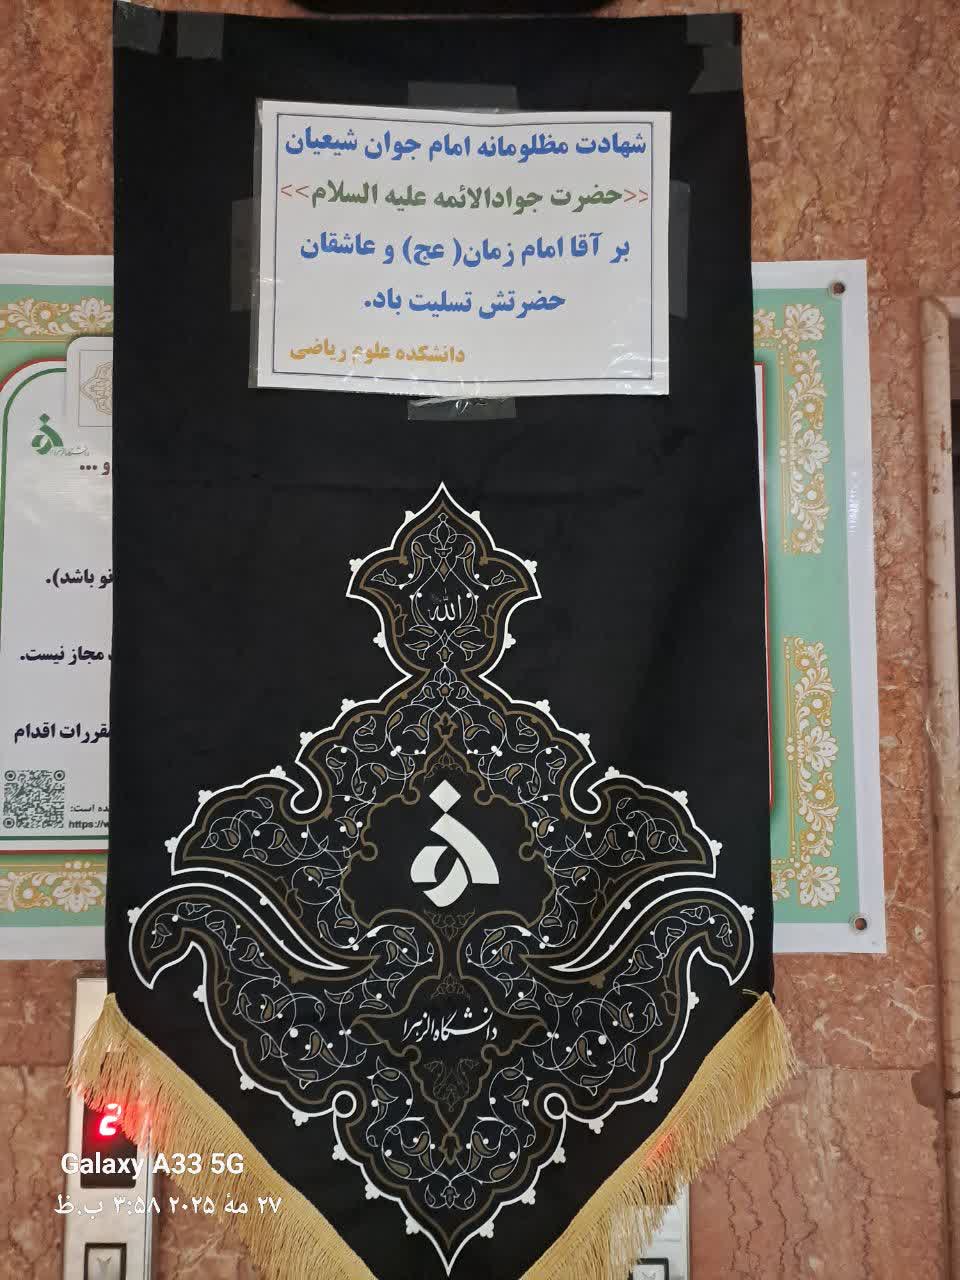 شهادت مظلومانه امام جوان شیعیان
<<حضرت جوادالائمه علیه السلام>>
بر آقا امام زمان( عج) و عاشقان
حضرتش تسلیت باد.
دانشکده علوم ریاضی
و ...
نو باشد).
مجاز نیست.
مقررات اقدام
ده است:
https://w
الله
دانشگاه الزهرا
2
Galaxy A33 5G
۲۷ مهٔ ۲۰۲۵ ۳:۵۸ ب.ظ